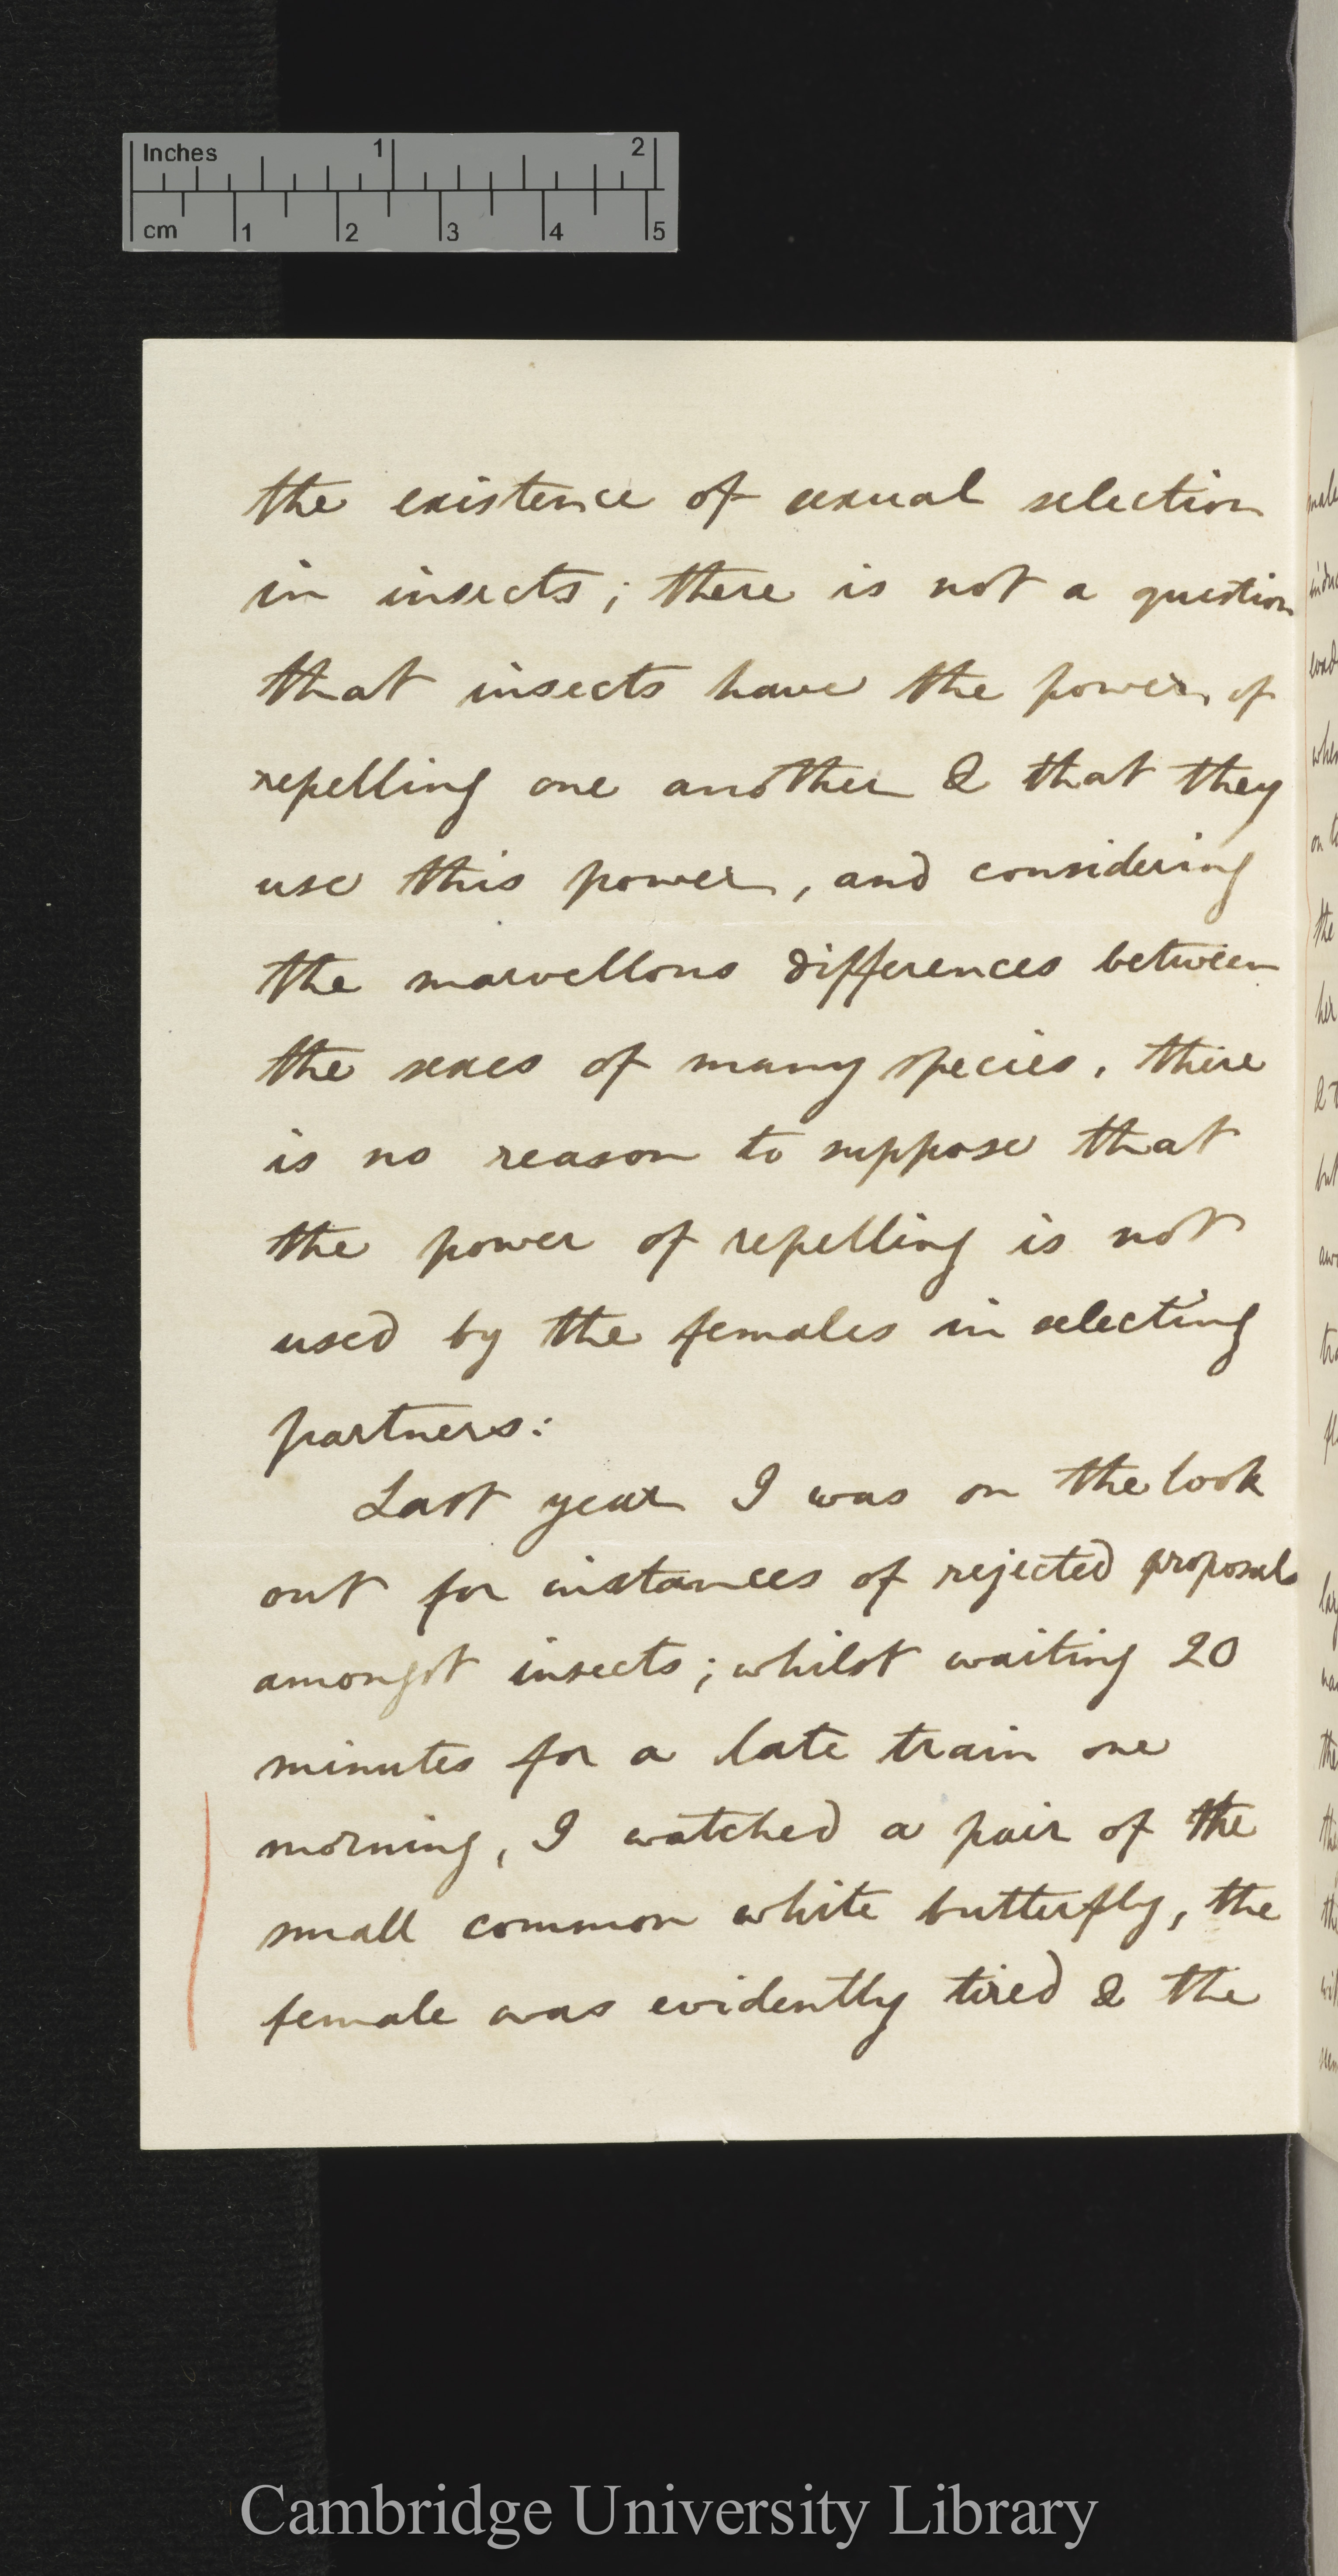 Inches 1 2
cm 1 2 3 4 5
the existence of sexual selection
in insects; there is not a question
that insects have the power of
repelling one another & that they
use this power, and considering
the marvellous differences between
the sexes of many species, there
is no reason to suppose that
the power of repelling is not
used by the females in selecting
partners:
Last year I was on the look
out for instances of rejected proposals
amongst insects; whilst waiting 20
minutes for a late train one
morning, I watched a pair of the
small common white butterfly, the
female was evidently tired & the
Cambridge University Library